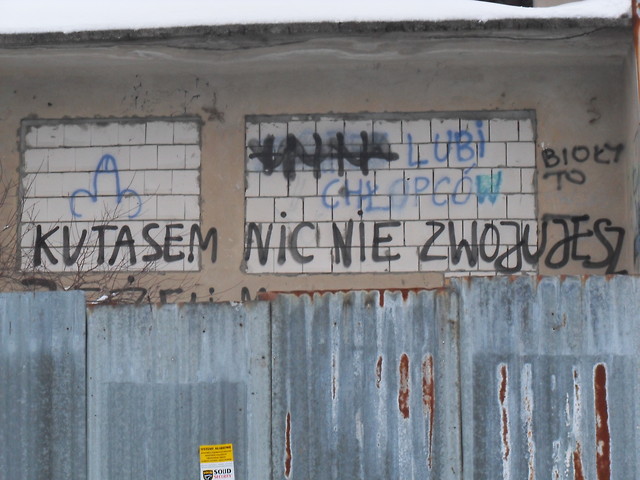 LUBi
CHŁOPCÓW
BIOŁY
TO
KUTASEM NiC NiE ZWOJUJESZ
SOLID